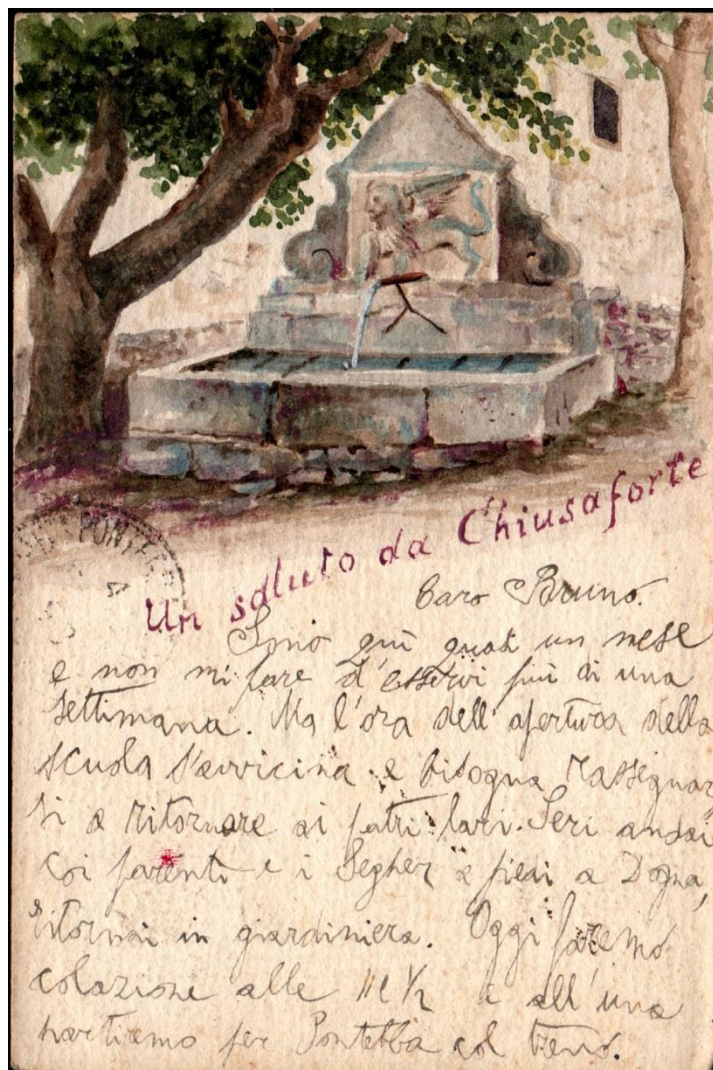 PONTE
Un saluto da Chiusaforte
Caro Bruno.
Sono qui quasi un mese
e non mi pare d'esservi più di una
settimana. Ma l'ora dell'apertura della
scuola s'avvicina e bisogna rassegnar
si a ritornare ai patri lari. Ieri andai
coi parenti e i Segher a piedi a Dogna,
ritornai in giardiniera. Oggi faremo
colazione alle 11 1/2 e all'una
partiremo per Pontebba col treno.